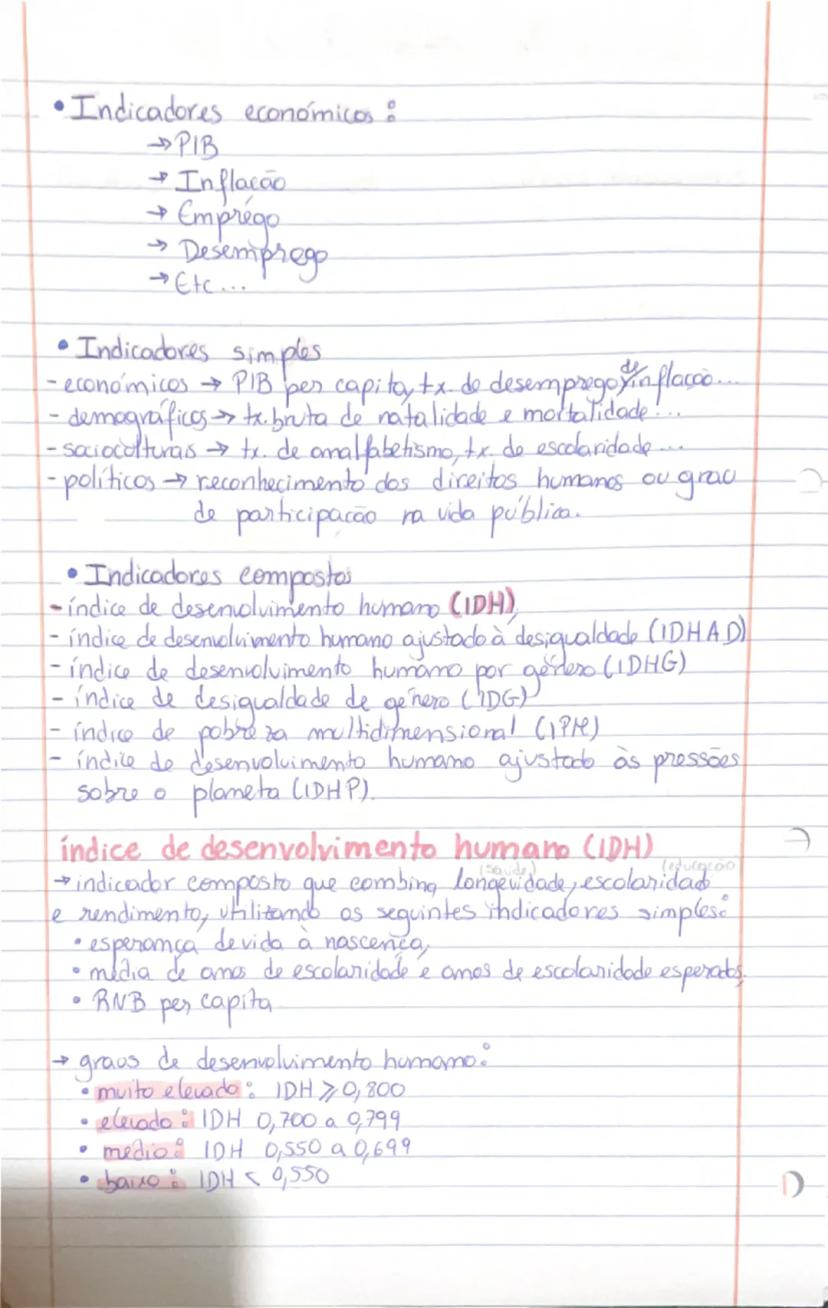 • Indicadores económicos:
→ PIB
→ Inflação
→ Emprégo
→ Desemprego
→ Etc...
• Indicadores simples
- económicos → PIB per capita, tx. de desemprego, de inflação...
- demográficos → tx. bruta de natalidade e mortalidade...
- socioculturais → tx. de analfabetismo, tx. de escolaridade...
- políticos → reconhecimento dos direitos humanos ou grau
de participação na vida pública.
• Indicadores compostos
- índice de desenvolvimento humano (IDH)
- índice de desenvolvimento humano ajustado à desigualdade (IDHAD)
- índice de desenvolvimento humano por género (IDHG)
- índice de desigualdade de género (IDG)
- índice de pobreza multidimensional (IPM)
- índice de desenvolvimento humano ajustado às pressões
sobre o planeta (IDHP).
índice de desenvolvimento humano (IDH)
(saúde) (educação
→ indicador composto que combina longevidade, escolaridad
e rendimento, utilizando os seguintes indicadores simples:
• esperança de vida à nascença,
• média de anos de escolaridade e anos de escolaridade esperados,
• RNB per capita
→ graus de desenvolvimento humano:
• muito elevado: IDH ⩾ 0,800
• elevado: IDH 0,700 a 0,799
• médio: IDH 0,550 a 0,699
• baixo: IDH < 0,550